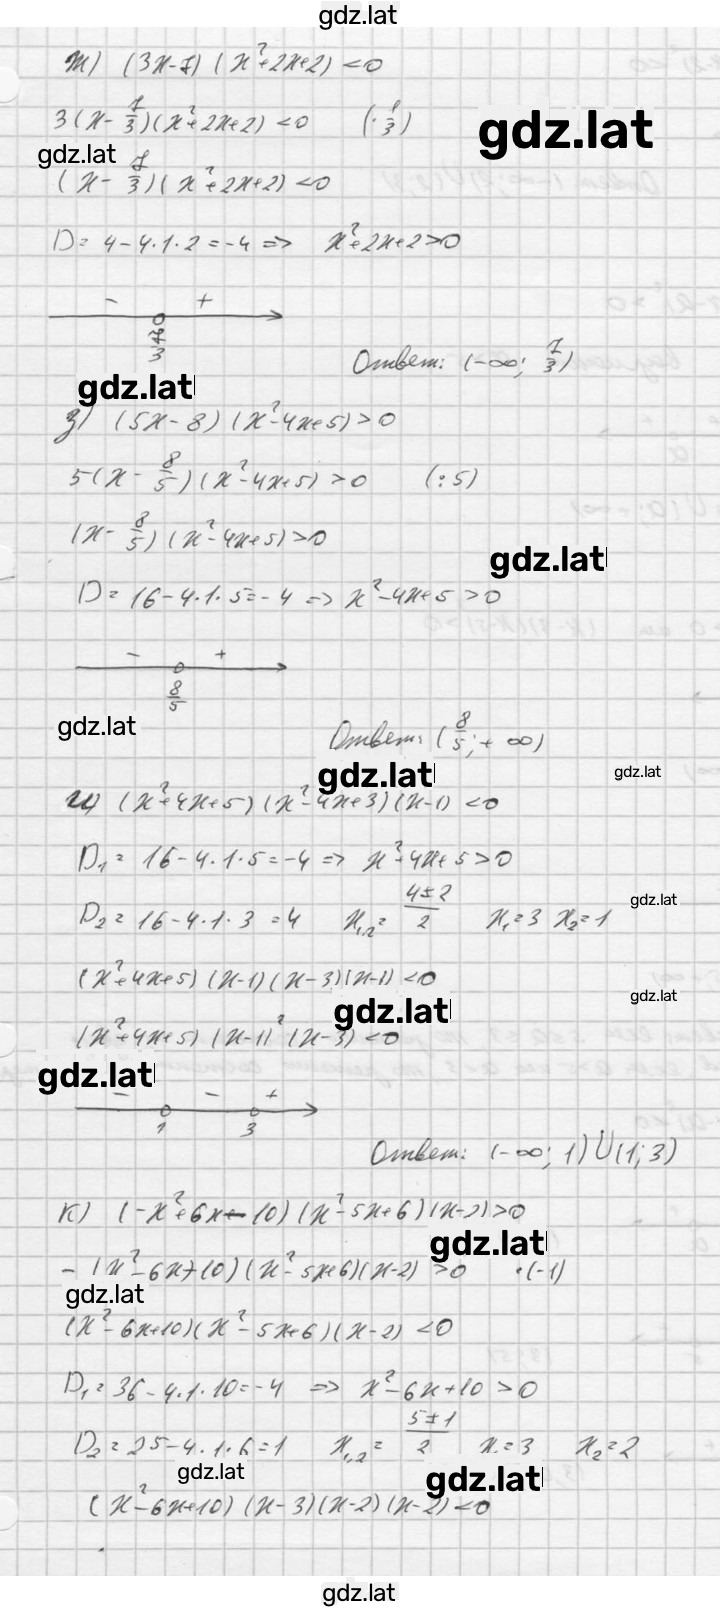 gdz.lat
ж) (3x-7)(x²+2x+2)<0
3(x-7/3)(x²+2x+2)<0 (·1/3)
gdz.lat
gdz.lat
(x-7/3)(x²+2x+2)<0
D=4-4·1·2=-4 => x²+2x+2>0
- +
7/3
Ответ: (-∞; 7/3)
gdz.lat
з) (5x-8)(x²-4x+5)>0
5(x-8/5)(x²-4x+5)>0 (:5)
(x-8/5)(x²-4x+5)>0
gdz.lat
D=16-4·1·5=-4 => x²-4x+5>0
- +
8/5
gdz.lat
Ответ: (8/5; +∞)
gdz.lat
gdz.lat
и) (x²+4x+5)(x²-4x+3)(x-1)<0
D₁=16-4·1·5=-4 => x²+4x+5>0
D₂=16-4·1·3=4 x₁,₂=4±2/2 x₁=3 x₂=1
gdz.lat
(x²+4x+5)(x-1)(x-3)(x-1)<0
gdz.lat
gdz.lat
(x²+4x+5)(x-1)²(x-3)<0
gdz.lat
- - +
1 3
Ответ: (-∞; 1)∪(1; 3)
к) (-x²+6x-10)(x²-5x+6)(x-2)>0
gdz.lat
-(x²-6x+10)(x²-5x+6)(x-2)>0 ·(-1)
gdz.lat
(x²-6x+10)(x²-5x+6)(x-2)<0
D₁=36-4·1·10=-4 => x²-6x+10>0
D₂=25-4·1·6=1 x₁,₂=5±1/2 x=3 x₂=2
gdz.lat
gdz.lat
(x²-6x+10)(x-3)(x-2)(x-2)<0
gdz.lat